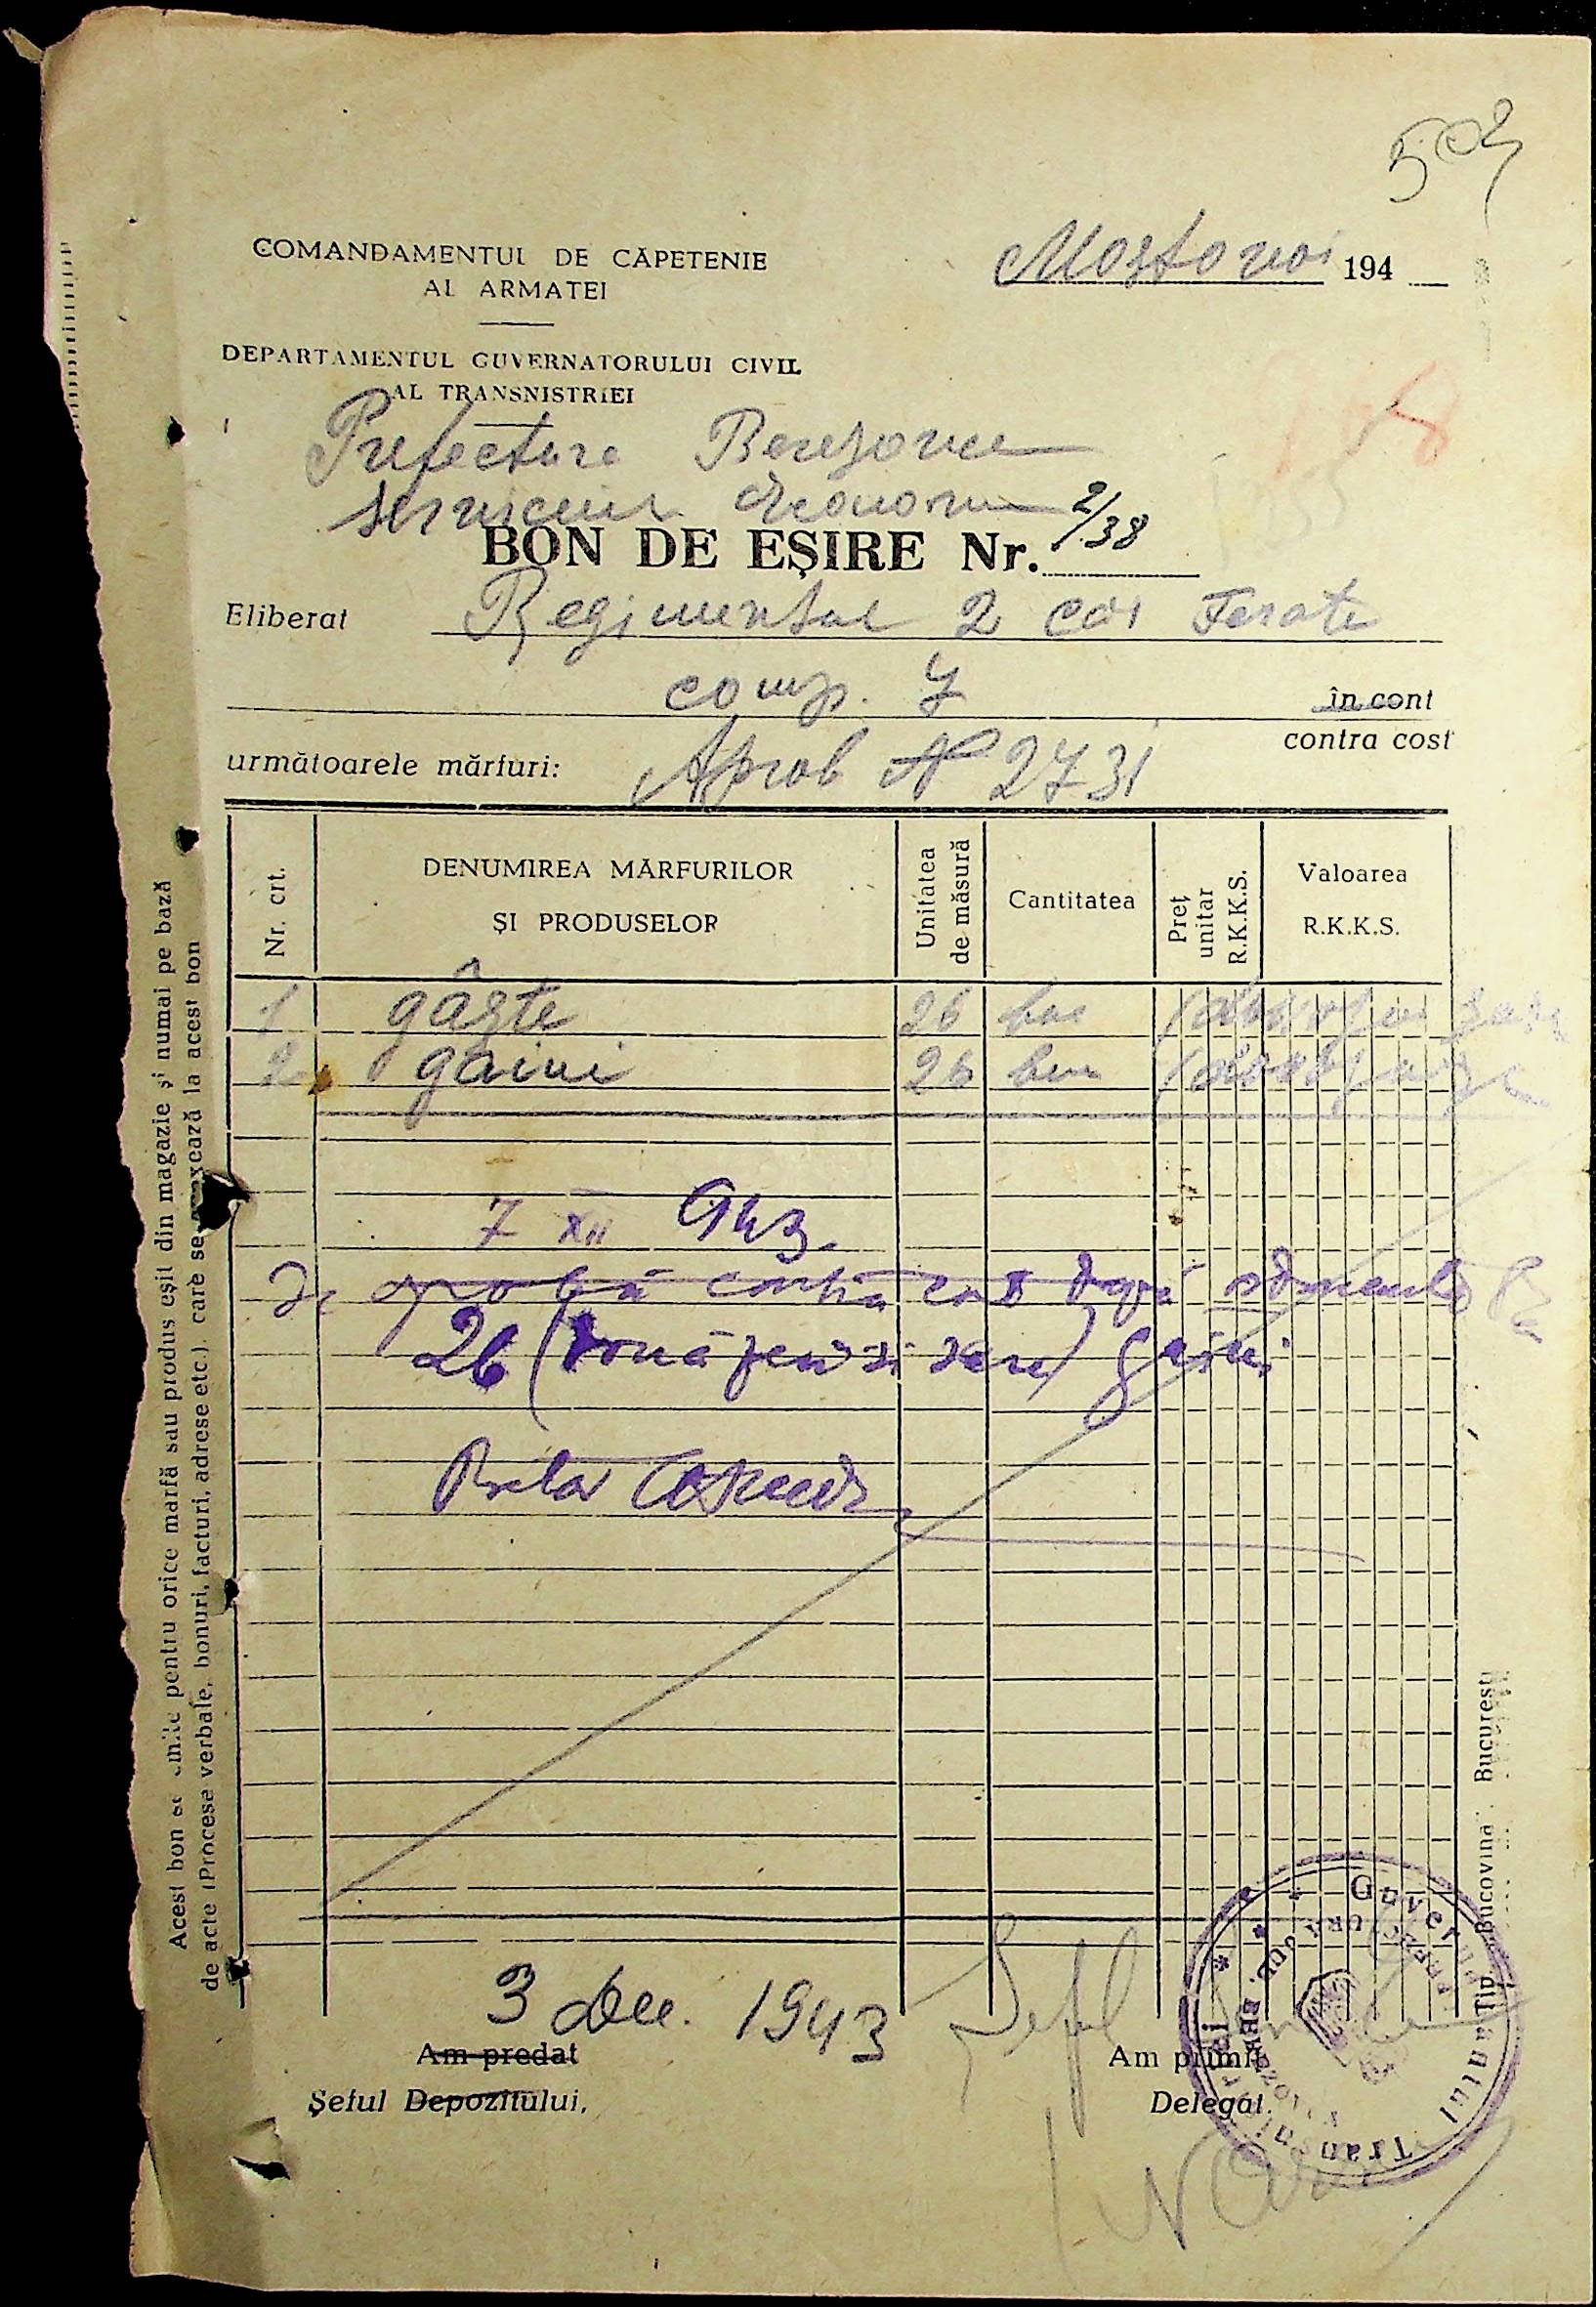 502
COMANDAMENTUL DE CĂPETENIE
AL ARMATEI
Mostovoi 194
DEPARTAMENTUL GUVERNATORULUI CIVIL
AL TRANSNISTRIEI
Prefectura Berezovca
serviciul Econom
BON DE EȘIRE Nr. 2/38
Eliberat Regimentul 2 căi Ferate
comp. 7
în cont
contra cost
următoarele mărfuri: Aprob N 2731
Nr. crt.
DENUMIREA MĂRFURILOR
ȘI PRODUSELOR
Unitatea
de măsură
Cantitatea
Preț
unitar
R.K.K.S.
Valoarea
R.K.K.S.
1 gâște 26 buc
2 găini 26 buc
7 XII 943.
Se aprobă contra cost după
26 (două zeci și șase) găini
Pretor
3 Dec. 1943
Am predat
Șeful Depozitului,
Șeful
Am primit
Delegat.
Guvernământul Transnistriei
PREFECTURA JUD. BEREZOVCA
Acest bon se emite pentru orice marfă sau produs eșit din magazie și numai pe bază
de acte (Procese verbale, bonuri, facturi, adrese etc.). care se anexează la acest bon
Tip. „Bucovina" București